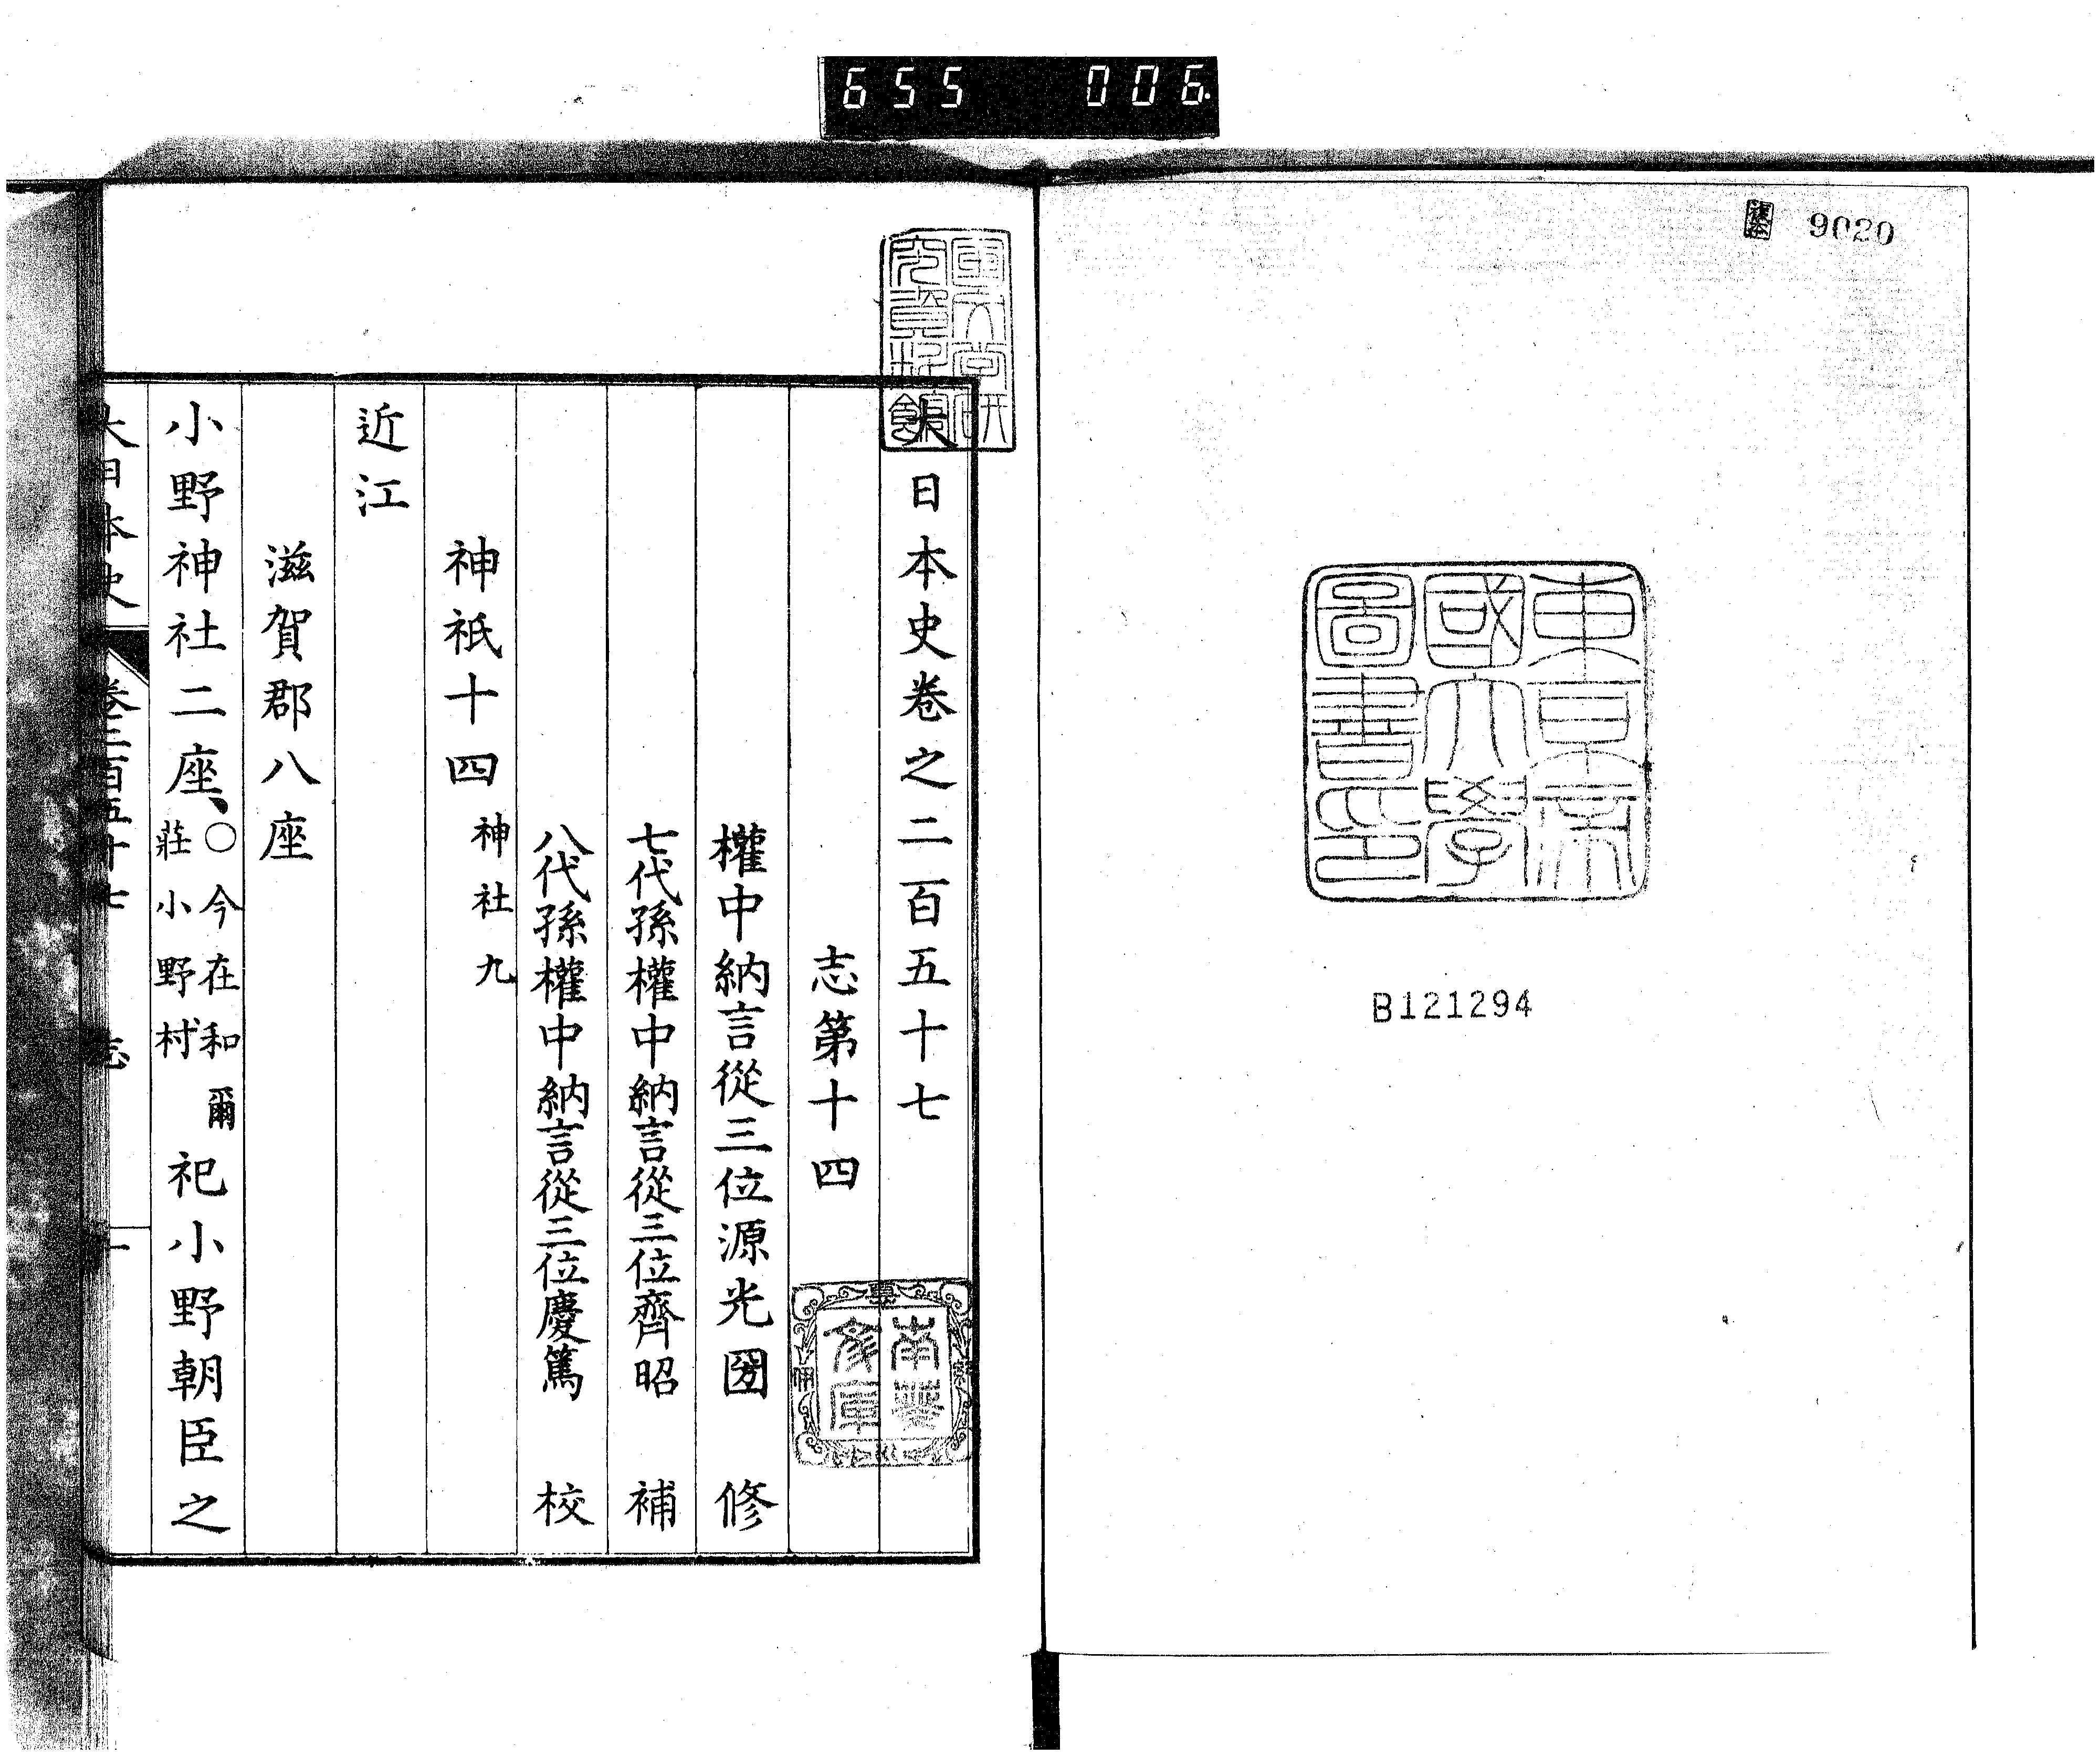 655 006.
9020
東京帝
國大學
圖書印
B121294
大日本史卷之二百五十七
志第十四
權中納言從三位源光圀 修
七代孫權中納言從三位齊昭 補
八代孫權中納言從三位慶篤 校
神祇十四 神社九
近江
滋賀郡八座
小野神社二座、○今在和爾莊小野村 祀小野朝臣之
大日本史 卷二百五十七 志 一